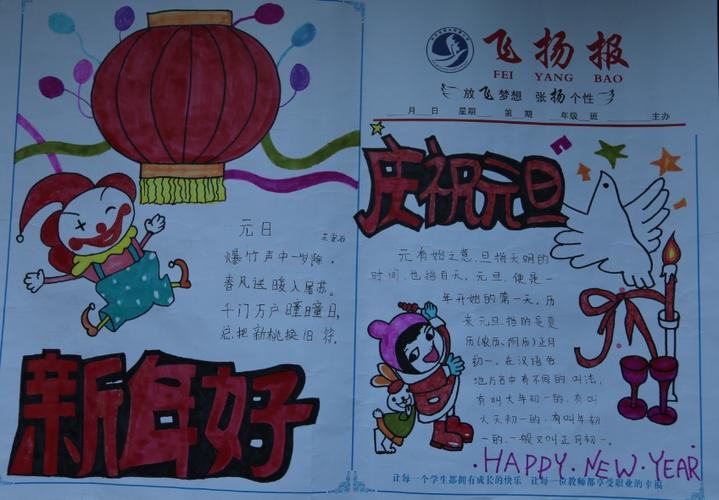 元日
王安石
爆竹声中一岁除，
春风送暖入屠苏。
千门万户曈曈日，
总把新桃换旧符。
新年好
飞扬报
FEI YANG BAO
放飞梦想 张扬个性
月 日 星期 第 期 年级 班 主办
庆祝元旦
元有始之意，旦指天明的
时间，也指白天。元旦，便是一
年开始的第一天。历
来元旦指的是夏
历(农历、阴历)正月
初一。在汉语各
地方言中有不同的叫法，
有叫大年初一的，有叫
大天初一的，有叫年初
一的，一般又叫正月初一。
·HAPPY·NEW·YEAR
让每一个学生都拥有成长的快乐 让每一位教师都享受职业的幸福